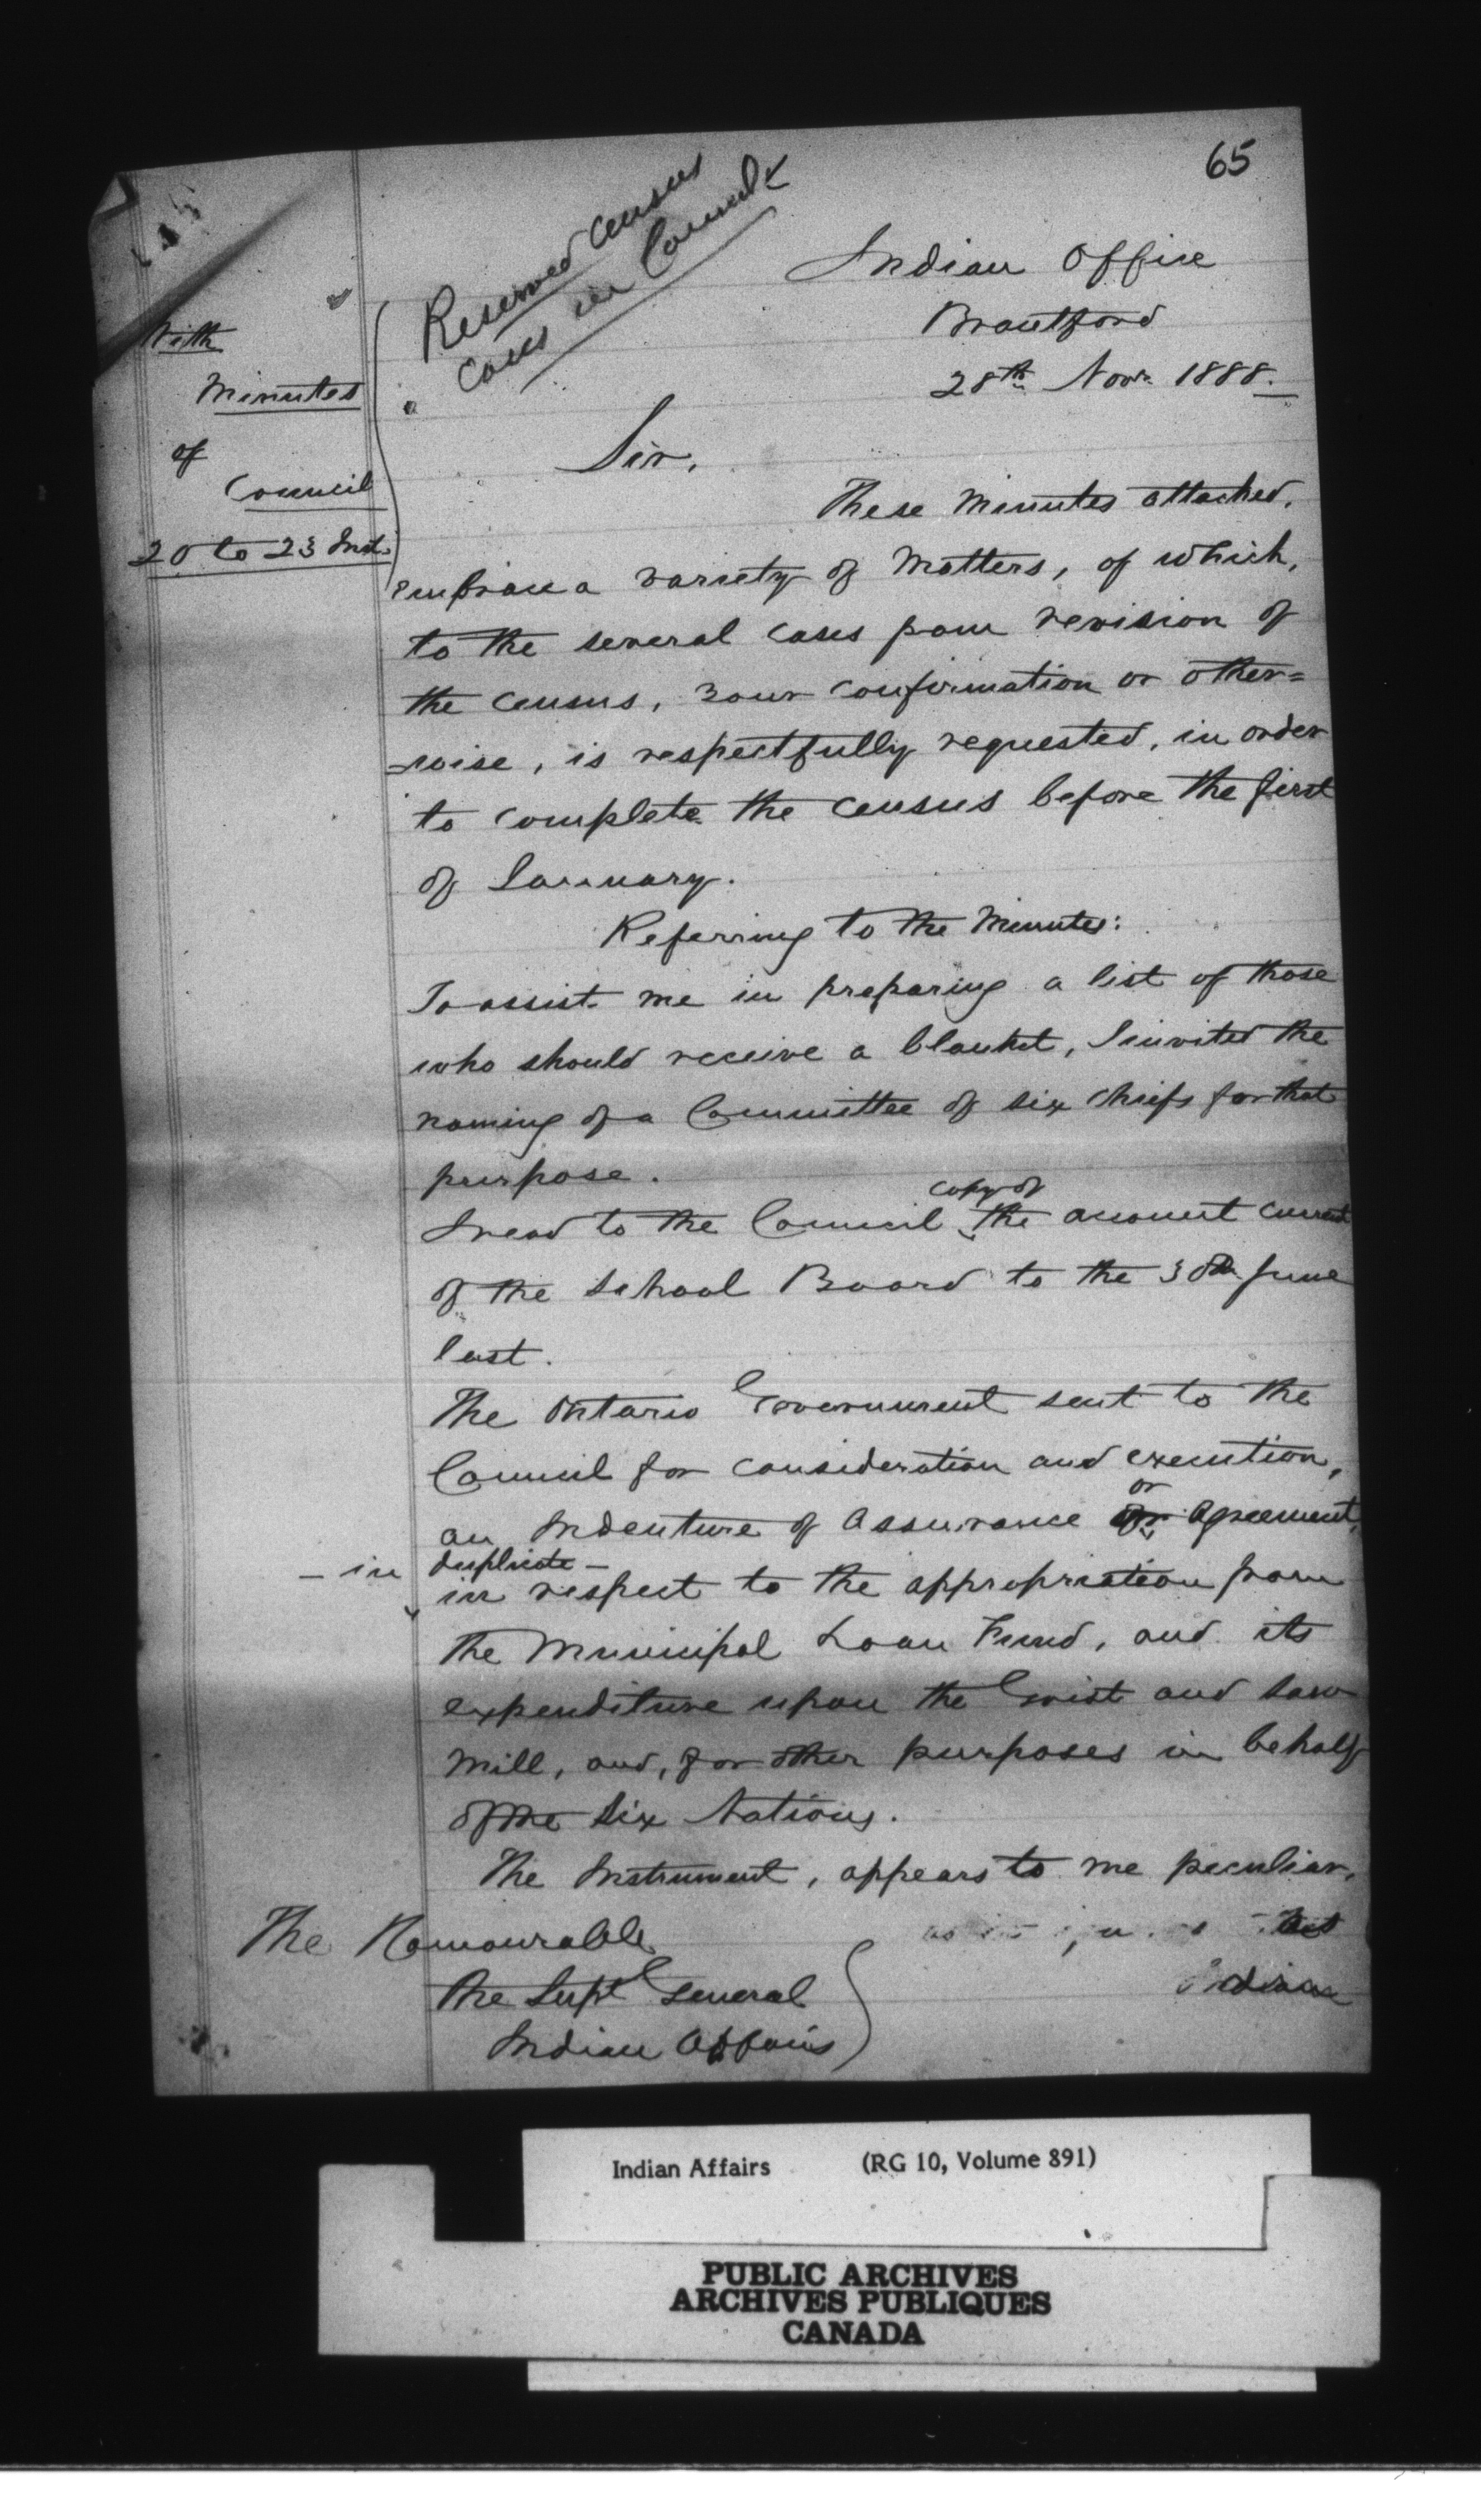 65
Reserved census
cases in Council
Indian Office
Brantford
28th Novr. 1888.
With
Minutes
of
Council
20 to 23 Inst.
Sir,
These Minutes attached,
embrace a variety of Matters, of which,
to the several cases from revision of
the census, your confirmation or other=
-wise, is respectfully requested, in order
to complete the census before the first
of January.
Referring to the Minutes:
To assist me in preparing a list of those
who should receive a blanket, I invited the
naming of a Committee of six Chiefs for that
purpose.
copy of
I read to the Council the account current
of the School Board to the 30th June
last.
The Ontario Government sent to the
Council for consideration and execution,
or
an Indenture of Assurance or Agreement,
- in duplicate -
in respect to the appropriation from
the Municipal Loan Fund, and its
expenditure upon the Grist and Saw
Mill, and, for other purposes in behalf
of the Six Nations.
The Instrument, appears to me peculiar,
as
Indian
The Honourable
The Supt General
Indian Affairs
Indian Affairs (RG 10, Volume 891)
PUBLIC ARCHIVES
ARCHIVES PUBLIQUES
CANADA